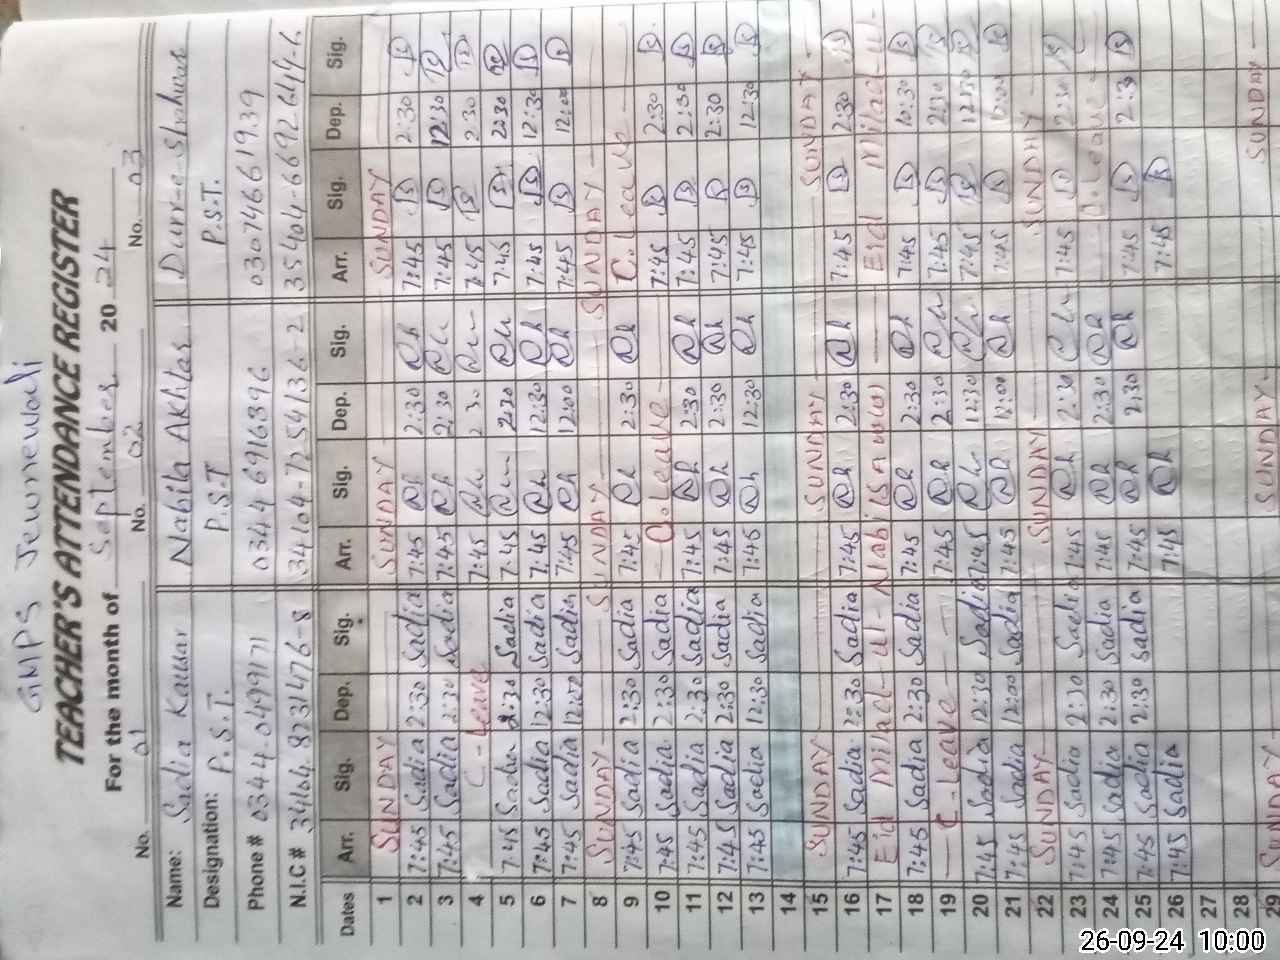 GMPS Jewnewali
TEACHER'S ATTENDANCE REGISTER
For the month of September 20 24
No. 01 No. 02 No. 03
Name: Sadia Kausar Nabila Akhtar
Designation: P.S.T. P.S.T P.S.T.
Phone # 0344-0499171 0344 6916396 03074661939
N.I.C #
Dates Arr. Sig. Dep. Sig. Arr. Sig. Dep. Sig. Arr. Sig. Dep. Sig.
1 SUNDAY SUNDAY SUNDAY
2 7:45 Sadia 2:30 Sadia 7:45 2:30 7:45 2:30
3 7:45 Sadia 2:30 Sadia 7:45 2:30 7:45 12:30
4 C-Leave 7:45 2 30 7:45 2:30
5 7:45 Sadia 2:30 Sadia 7:45 2:30 7:45 2:30
6 7:45 Sadia 12:30 Sadia 7:45 12:30 7:45 12:30
7 7:45 Sadia 12:00 Sadia 7:45 12:00 7:45 12:00
8 SUNDAY SUNDAY SUNDAY
9 7:45 Sadia 2:30 Sadia 7:45 2:30 C. Leave
10 7:45 Sadia 2:30 Sadia C. Leave 7:45 2:30
11 7:45 Sadia 2:30 Sadia 7:45 2:30 7:45 2:30
12 7:45 Sadia 2:30 Sadia 7:45 2:30 7:45 2:30
13 7:45 Sadia 12:30 Sadia 7:45 12:30 7:45 12:30
14
15 SUNDAY SUNDAY SUNDAY
16 7:45 Sadia 2:30 Sadia 7:45 2:30 7:45 2:30
17 Eid Milad-ul-Nabi (SAWW) Eid Milad-ul-
18 7:45 Sadia 2:30 Sadia 7:45 2:30 7:45
19 C-Leave 7:45 2:30 7:45 2:30
20 7:45 Sadia 12:30 Sadia 7:45 12:30 7:45 12:30
21 7:45 Sadia 12:00 Sadia 7:45 12:00 7:45 12:00
22 SUNDAY SUNDAY SUNDAY
23 7:45 Sadia 2:30 Sadia 7:45 2:30 7:45 2:30
24 7:45 Sadia 2:30 Sadia 7:45 2:30 C. Leave
25 7:45 Sadia 2:30 Sadia 7:45 2:30 7:45 2:30
26 7:45 Sadia 7:45 7:45
27
28
29 SUNDAY SUNDAY SUNDAY
26-09-24 10:00